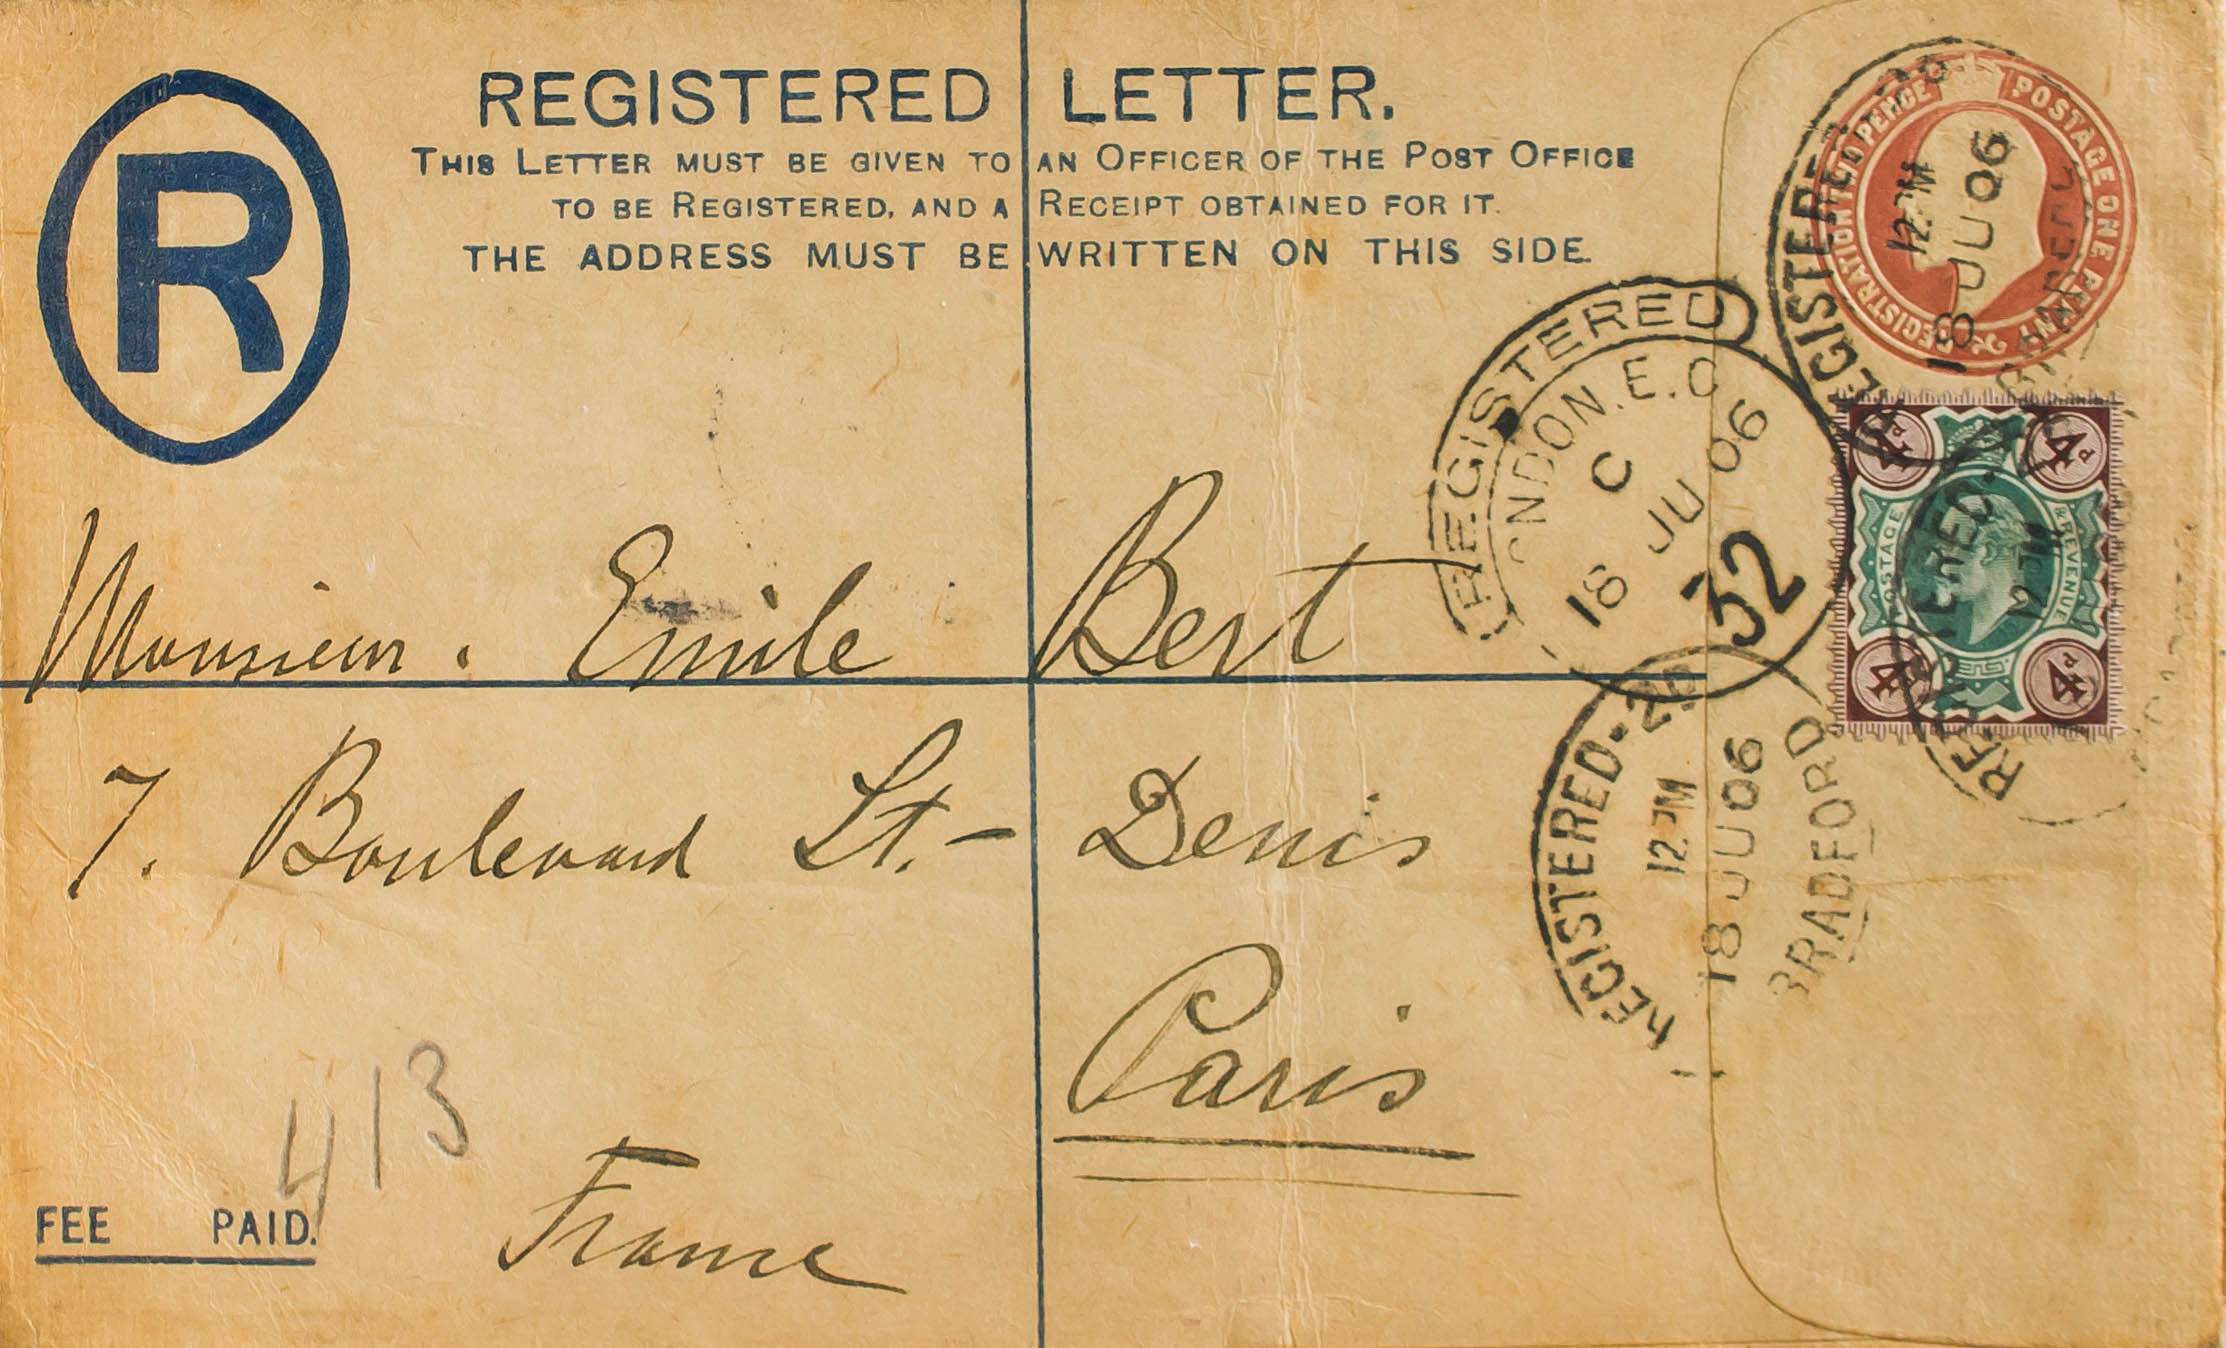 R
REGISTERED LETTER.
THIS LETTER MUST BE GIVEN TO AN OFFICER OF THE POST OFFICE
TO BE REGISTERED, AND A RECEIPT OBTAINED FOR IT.
THE ADDRESS MUST BE WRITTEN ON THIS SIDE.
REGISTRATION TWO PENCE POSTAGE ONE PENNY
REGISTERED
12.PM
18 JU 06
BRADFORD
REGISTERED
LONDON.E.C
C
18 JU 06
32
4d 4d
POSTAGE & REVENUE
4d 4d
REGISTERED
12.PM
Monsieur. Emile Bert
7. Boulevard St.- Denis
Paris
France
REGISTERED
12.PM
18 JU 06
BRADFORD
413
FEE PAID.